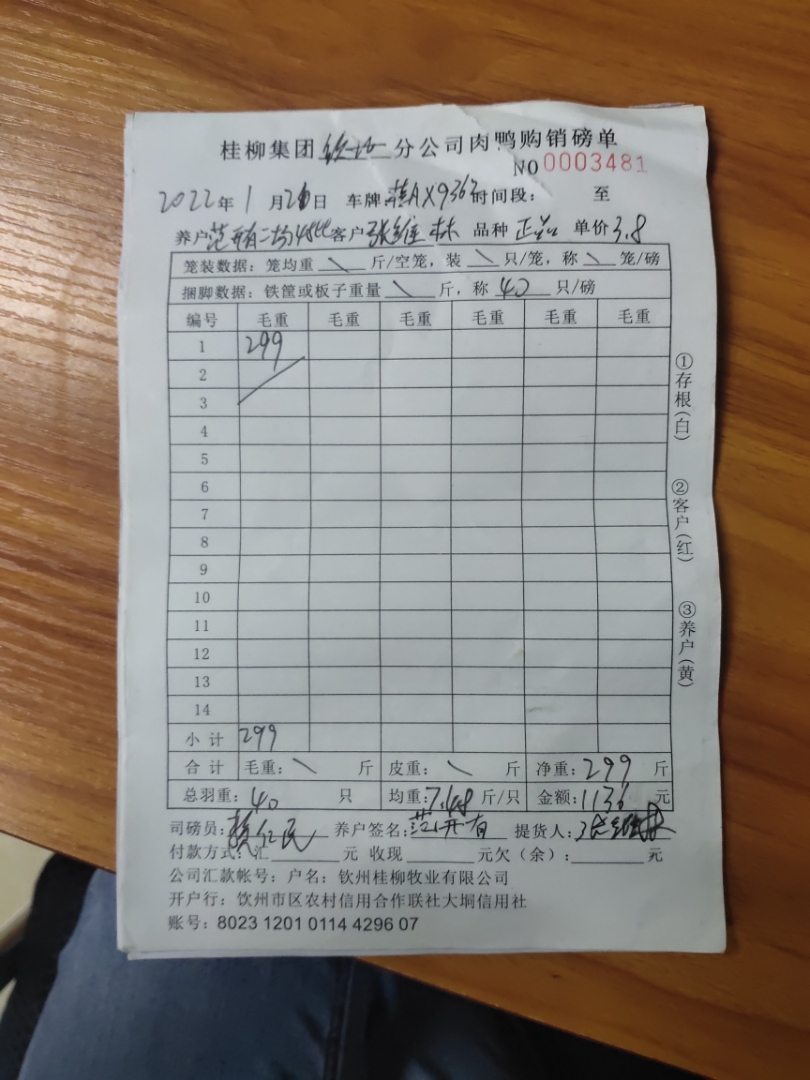 桂柳集团钦州分公司肉鸭购销磅单
NO 0003481
2022年1月26日 车牌 AX9363 时间段： 至
养户 客户 张维林 品种 正品 单价 3.8
笼装数据：笼均重 \ 斤/空笼，装 \ 只/笼，称 \ 笼/磅
捆脚数据：铁筐或板子重量 \ 斤，称 40 只/磅
编号 毛重 毛重 毛重 毛重 毛重 毛重
1 299
2
3
4
5
6
7
8
9
10
11
12
13
14
小计 299
合计 毛重： \ 斤 皮重： \ 斤 净重：299 斤
总羽重：40 只 均重：7.48 斤/只 金额：1136 元
司磅员： 养户签名：范开有 提货人：张维林
付款方式：汇 元 收现 元欠（余）： 元
公司汇款帐号：户名：钦州桂柳牧业有限公司
开户行：钦州市区农村信用合作联社大垌信用社
账号：8023 1201 0114 4296 07
①存根（白）
②客户（红）
③养户（黄）